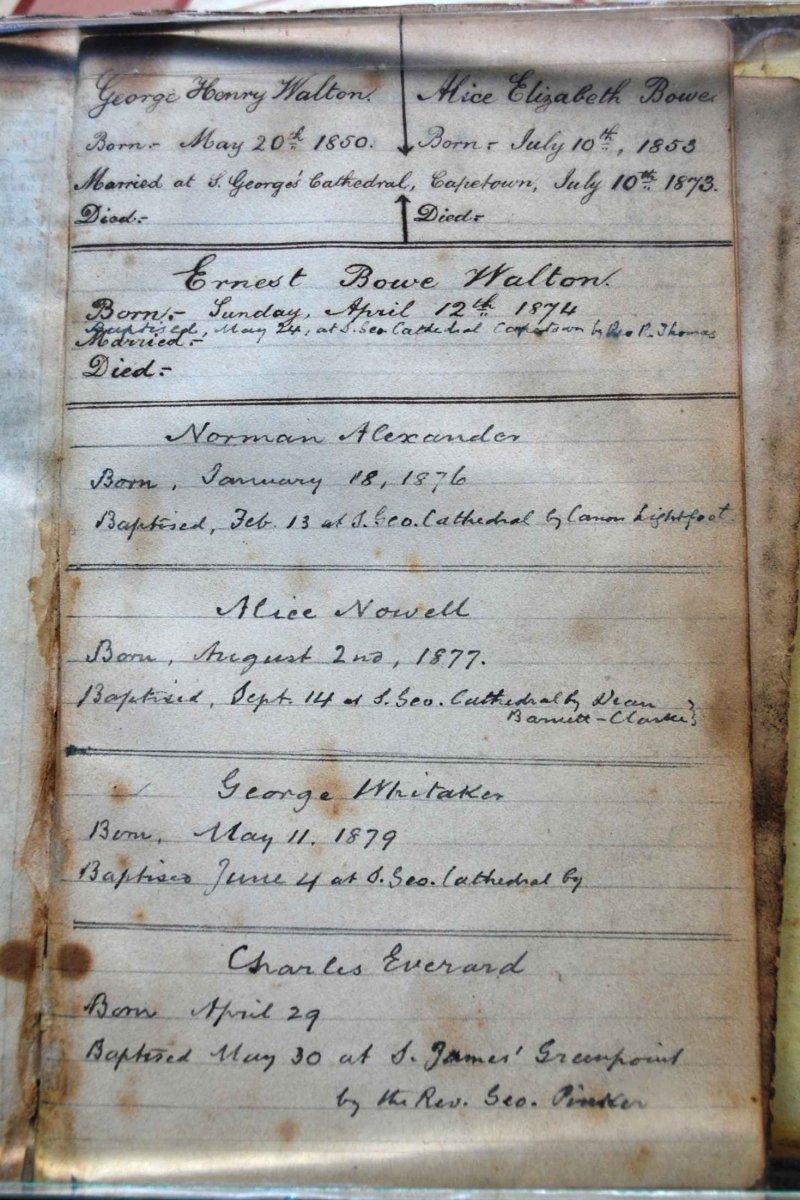 George Henry Walton.
Alice Elizabeth Bowe.
Born:- May 20th 1850.
Born:- July 10th, 1853
Married at S. George's Cathedral, Capetown, July 10th 1873.
Died:-
Died:-
Ernest Bowe Walton.
Born:- Sunday, April 12th 1874
Baptised, May 24, at S. Geo. Cathedral Capetown by Rev P. Thomas
Married:-
Died:-
Norman Alexander
Born, January 18, 1876
Baptised, Feb. 13 at S. Geo. Cathedral by Canon Lightfoot.
Alice Nowell
Born, August 2nd, 1877.
Baptised, Sept. 14 at S. Geo. Cathedral by Dean
Barnett-Clarke
George Whitaker
Born, May 11. 1879
Baptised June 4 at S. Geo. Cathedral by
Charles Everard
Born April 29
Baptised May 30 at S. James' Greenpoint
by the Rev. Geo. Pinker